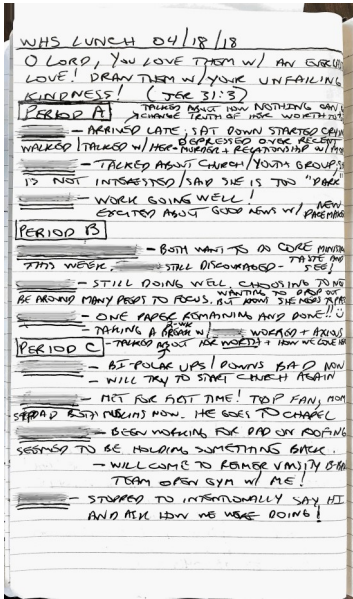 WHS LUNCH 04/18/18
O LORD, YOU LOVE THEM W/ AN
LOVE! DRAW THEM W/ YOUR UNFAILING
KINDNESS! (JER 31:3)
PERIOD A TALKED ABOUT HOW NOTHING CAN
CHANGE TRUTH OF HER WORTH TO
- ARRIVED LATE, SAT DOWN STARTED
DEPRESSED OVER RECENT
WALKED/TALKED W/ HER- MURDER + RELATIONSHIP W/
- TALKED ABOUT CHURCH/YOUTH GROUP,
IS NOT INTERESTED/SAID SHE IS TOO "DARK"
- WORK GOING WELL!
EXCITED ABOUT GOOD NEWS W/ NEW
PACEMAKER
PERIOD B
- BOTH WANT TO DO CORE
THIS WEEK. STILL DISCOURAGED- TASTE AND
SEE!
- STILL DOING WELL, CHOOSING TO
BE AROUND MANY PEEPS TO FOCUS. WANTING TO DROP OUT
BUT KNOWS SHE NEEDS
- ONE PAPER REMAINING AND DONE!!
- TAKING A 2-WK BREAK W/ WORRIED +
PERIOD C - TALKED ABOUT HER WORTH + HOW WE LOVE
- BI-POLAR UPS/DOWNS BAD NOW
- WILL TRY TO START CHURCH AGAIN
- MET FOR FIRST TIME! TOP FAN, MOM
BOTH MUSLIMS NOW. HE GOES TO CHAPEL
- BEEN WORKING FOR DAD ON ROOFING
SEEMED TO BE HOLDING SOMETHING BACK.
- WILL COME TO REIMER VARSITY
TEAM OPEN GYM W/ ME!
- STOPPED TO INTENTIONALLY SAY HI
AND ASK HOW WE WERE DOING!